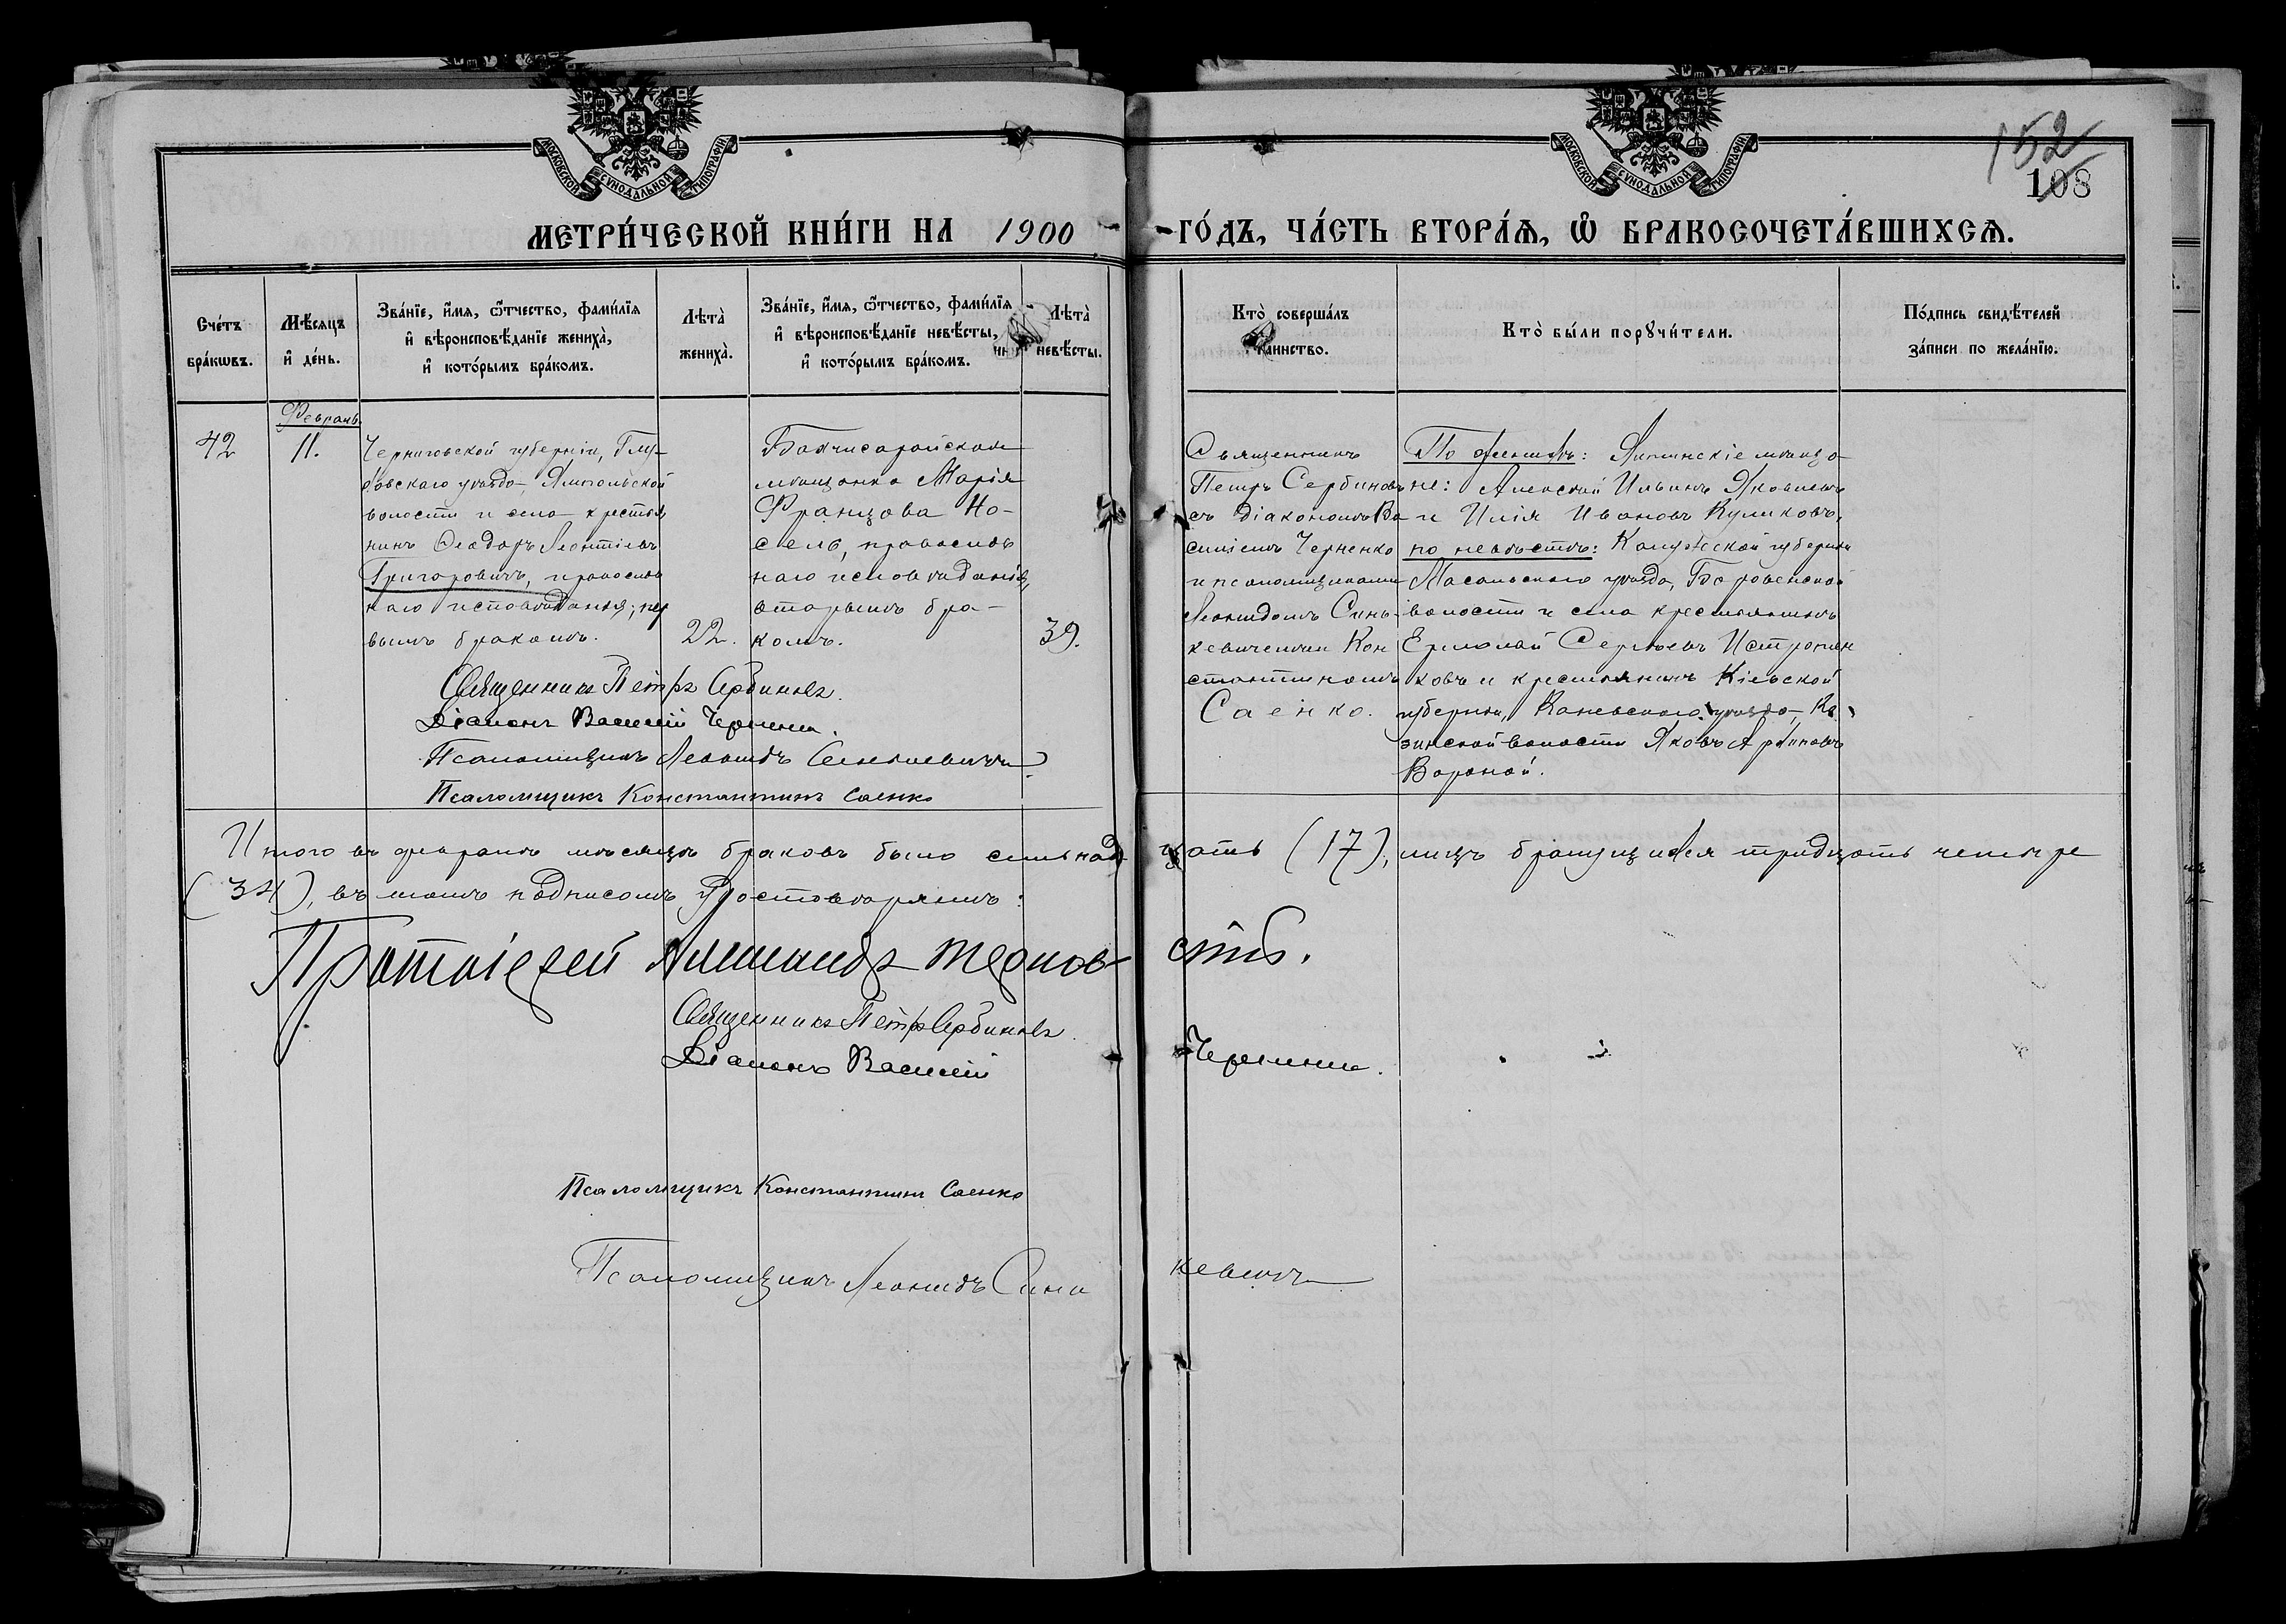 МОСКОВСКОЙ СѴНОДАЛЬНОЙ ТИПОГРАФІИ
МОСКОВСКОЙ СѴНОДАЛЬНОЙ ТИПОГРАФІИ
152
108
МЕТРИ́ЧЕСКОЙ КНИ́ГИ НА 1900 ГО́ДЪ, ЧА́СТЬ ВТОРА́Ѧ, Ѽ БРАКОСОЧЕТА́ВШИХСѦ.
Сче́тъ
бра́кѡвъ.
Мѣ́сяцъ
и҆ де́нь.
Зва́нїе, и҆́мѧ, ѻ҆́тчество, фами́лїѧ
и҆ вѣроисповѣ́данїе жениха̀,
и҆ кото́рымъ бра́комъ.
Лѣта̀
жениха̀.
Зва́нїе, и҆́мѧ, ѻ҆́тчество, фами́лїѧ
и҆ вѣроисповѣ́данїе невѣ́сты,
и҆ кото́рымъ бра́комъ.
Лѣта̀
невѣ́сты.
Кто̀ соверша́лъ
таинство.
Кто̀ бы́ли порꙋчи́тели.
По́дпись свидѣ́телей
за́писи по жела́нїю.
Февраль
42
11.
Черниговской губерніи, Глу-
ховскаго уѣзда, Ямпольской
волости и села крестья
нинъ Ѳеодоръ Леонтіевъ
Григоровичъ, православ
наго исповѣданія; пер
вымъ бракомъ.
22.
Бахчисарайская
мѣщанка Марія
Францова Но-
сель, православ
наго исповѣданія,
вторымъ бра-
комъ.
39.
Священникъ
Петръ Сербиновъ
съ діакономъ Ва
силіемъ Черненко
и псаломщиками
Леонидомъ Синь-
кевичемъ и Кон
стантиномъ
Саенко.
По женихѣ: Ялтинскіе мѣща-
не: Алексѣй Ильинъ Яковлевъ
и Илія Ивановъ Куликовъ,
по невѣстѣ: Калужской губерніи
Масальскаго уѣзда,
волости и села крестьянинъ
Ермолай Сергѣевъ
ковъ и крестьянинъ Кіевской
губерніи, Каневскаго уѣзда, Ко
зинской волости Яковъ
Вороной.
Священникъ Петръ Сербиновъ.
Діаконъ Василій Черненко.
Псаломщикъ Леонидъ Синькевичъ
Псаломщикъ Константинъ Саенко
Итого въ февралѣ мѣсяцѣ браковъ было семьнад цать (17), лицъ брачущихся тридцать четыре
(34), въ чемъ подписомъ удостовѣряемъ:
Протоіерей Александръ Тернов скій.
Священникъ Петръ Сербиновъ.
Діаконъ Василій Черненко.
Псаломщикъ Константинъ Саенко
Псаломщикъ Леонидъ Синь кевичъ